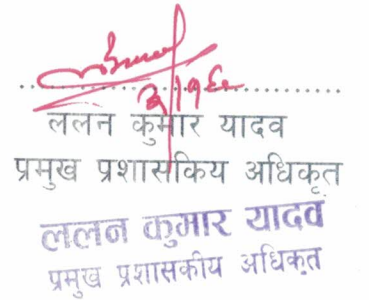 ललन कुमार यादव
प्रमुख प्रशासकिय अधिकृत
ललन कुमार यादव
प्रमुख प्रशासकीय अधिकृत